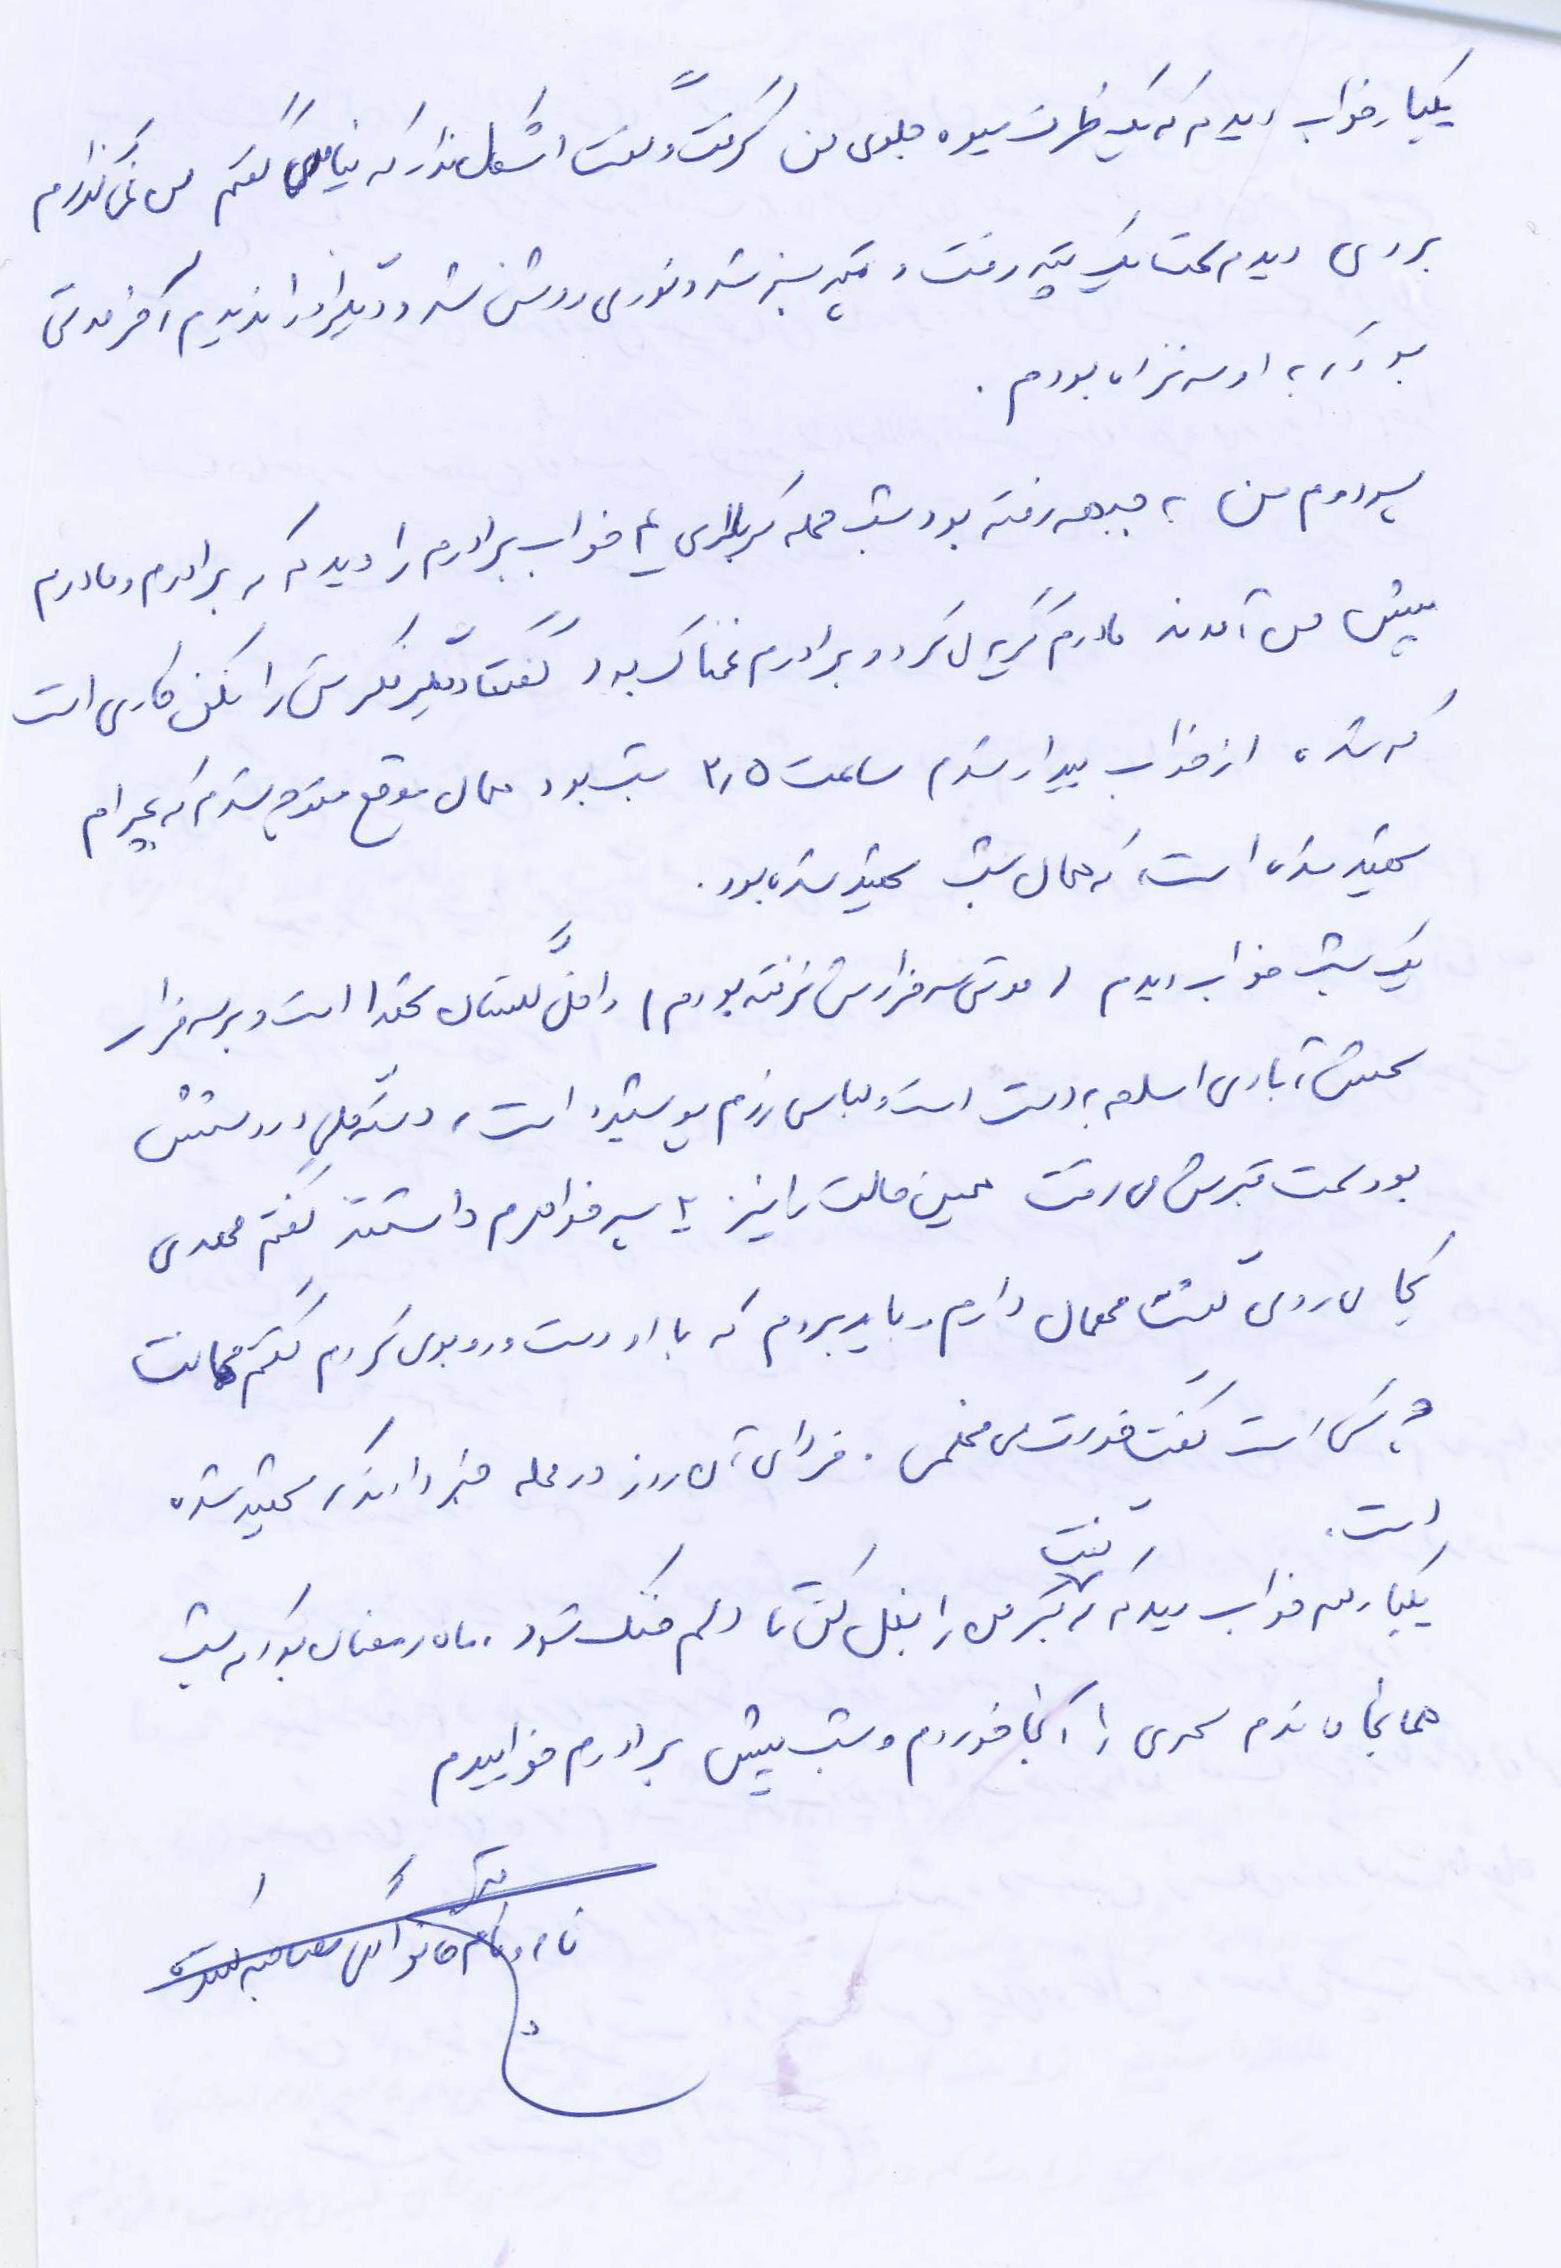 یکبار خواب دیدم که یک ظرف میوه جلوی من گرفت و گفت اشکال ندارد که بیایی گفتم من نمی‌گذارم
بروی دیدم سمت یک تپه رفت و تپه سبز شد و نوری روشن شد و دیگر او را ندیدم آخر مدتی
بود که به او سر نزده بودم.
پسر دوم من به جبهه رفته بود شب حمله کربلای ۴ خواب برادرم را دیدم که برادرم و مادرم
پیش من آمدند مادرم گریه می‌کرد و برادرم غمناک بود گفت دیگر فکرش را نکن کاری است
که شده از خواب بیدار شدم ساعت ۳٫۵ شب بود همان موقع متوجه شدم که بهرام
شهید شده است که همان شب شهید شده بود.
یک شب خواب دیدم (مدتی سر مزارش نرفته بودم) داخل گلستان شهدا است و بر سر مزار
شمس‌آبادی اسلحه به دست است و لباس رزم پوشیده است، دسته گلی در دستش
بود سمت قبرش می‌رفت همین حالت را نیز پسر خواهرم داشتند گفتم مهدی
کجا می‌روی گفت مهمان دارم و باید بروم که با او دست و روبوسی کردم گفتم مهمانت
چه کسی است گفت قدرت مخلصی. فردای آن روز در محله خبر دادند که شهید شده
است.
یکبار هم خواب دیدم که گفت قبر من را بغل کن تا دلم خنک شود. ماه رمضان بود که شب
همانجا ماندم سحری را آنجا خوردم و شب پیش برادرم خوابیدم
نام و نام خانوادگی مصاحبه شونده